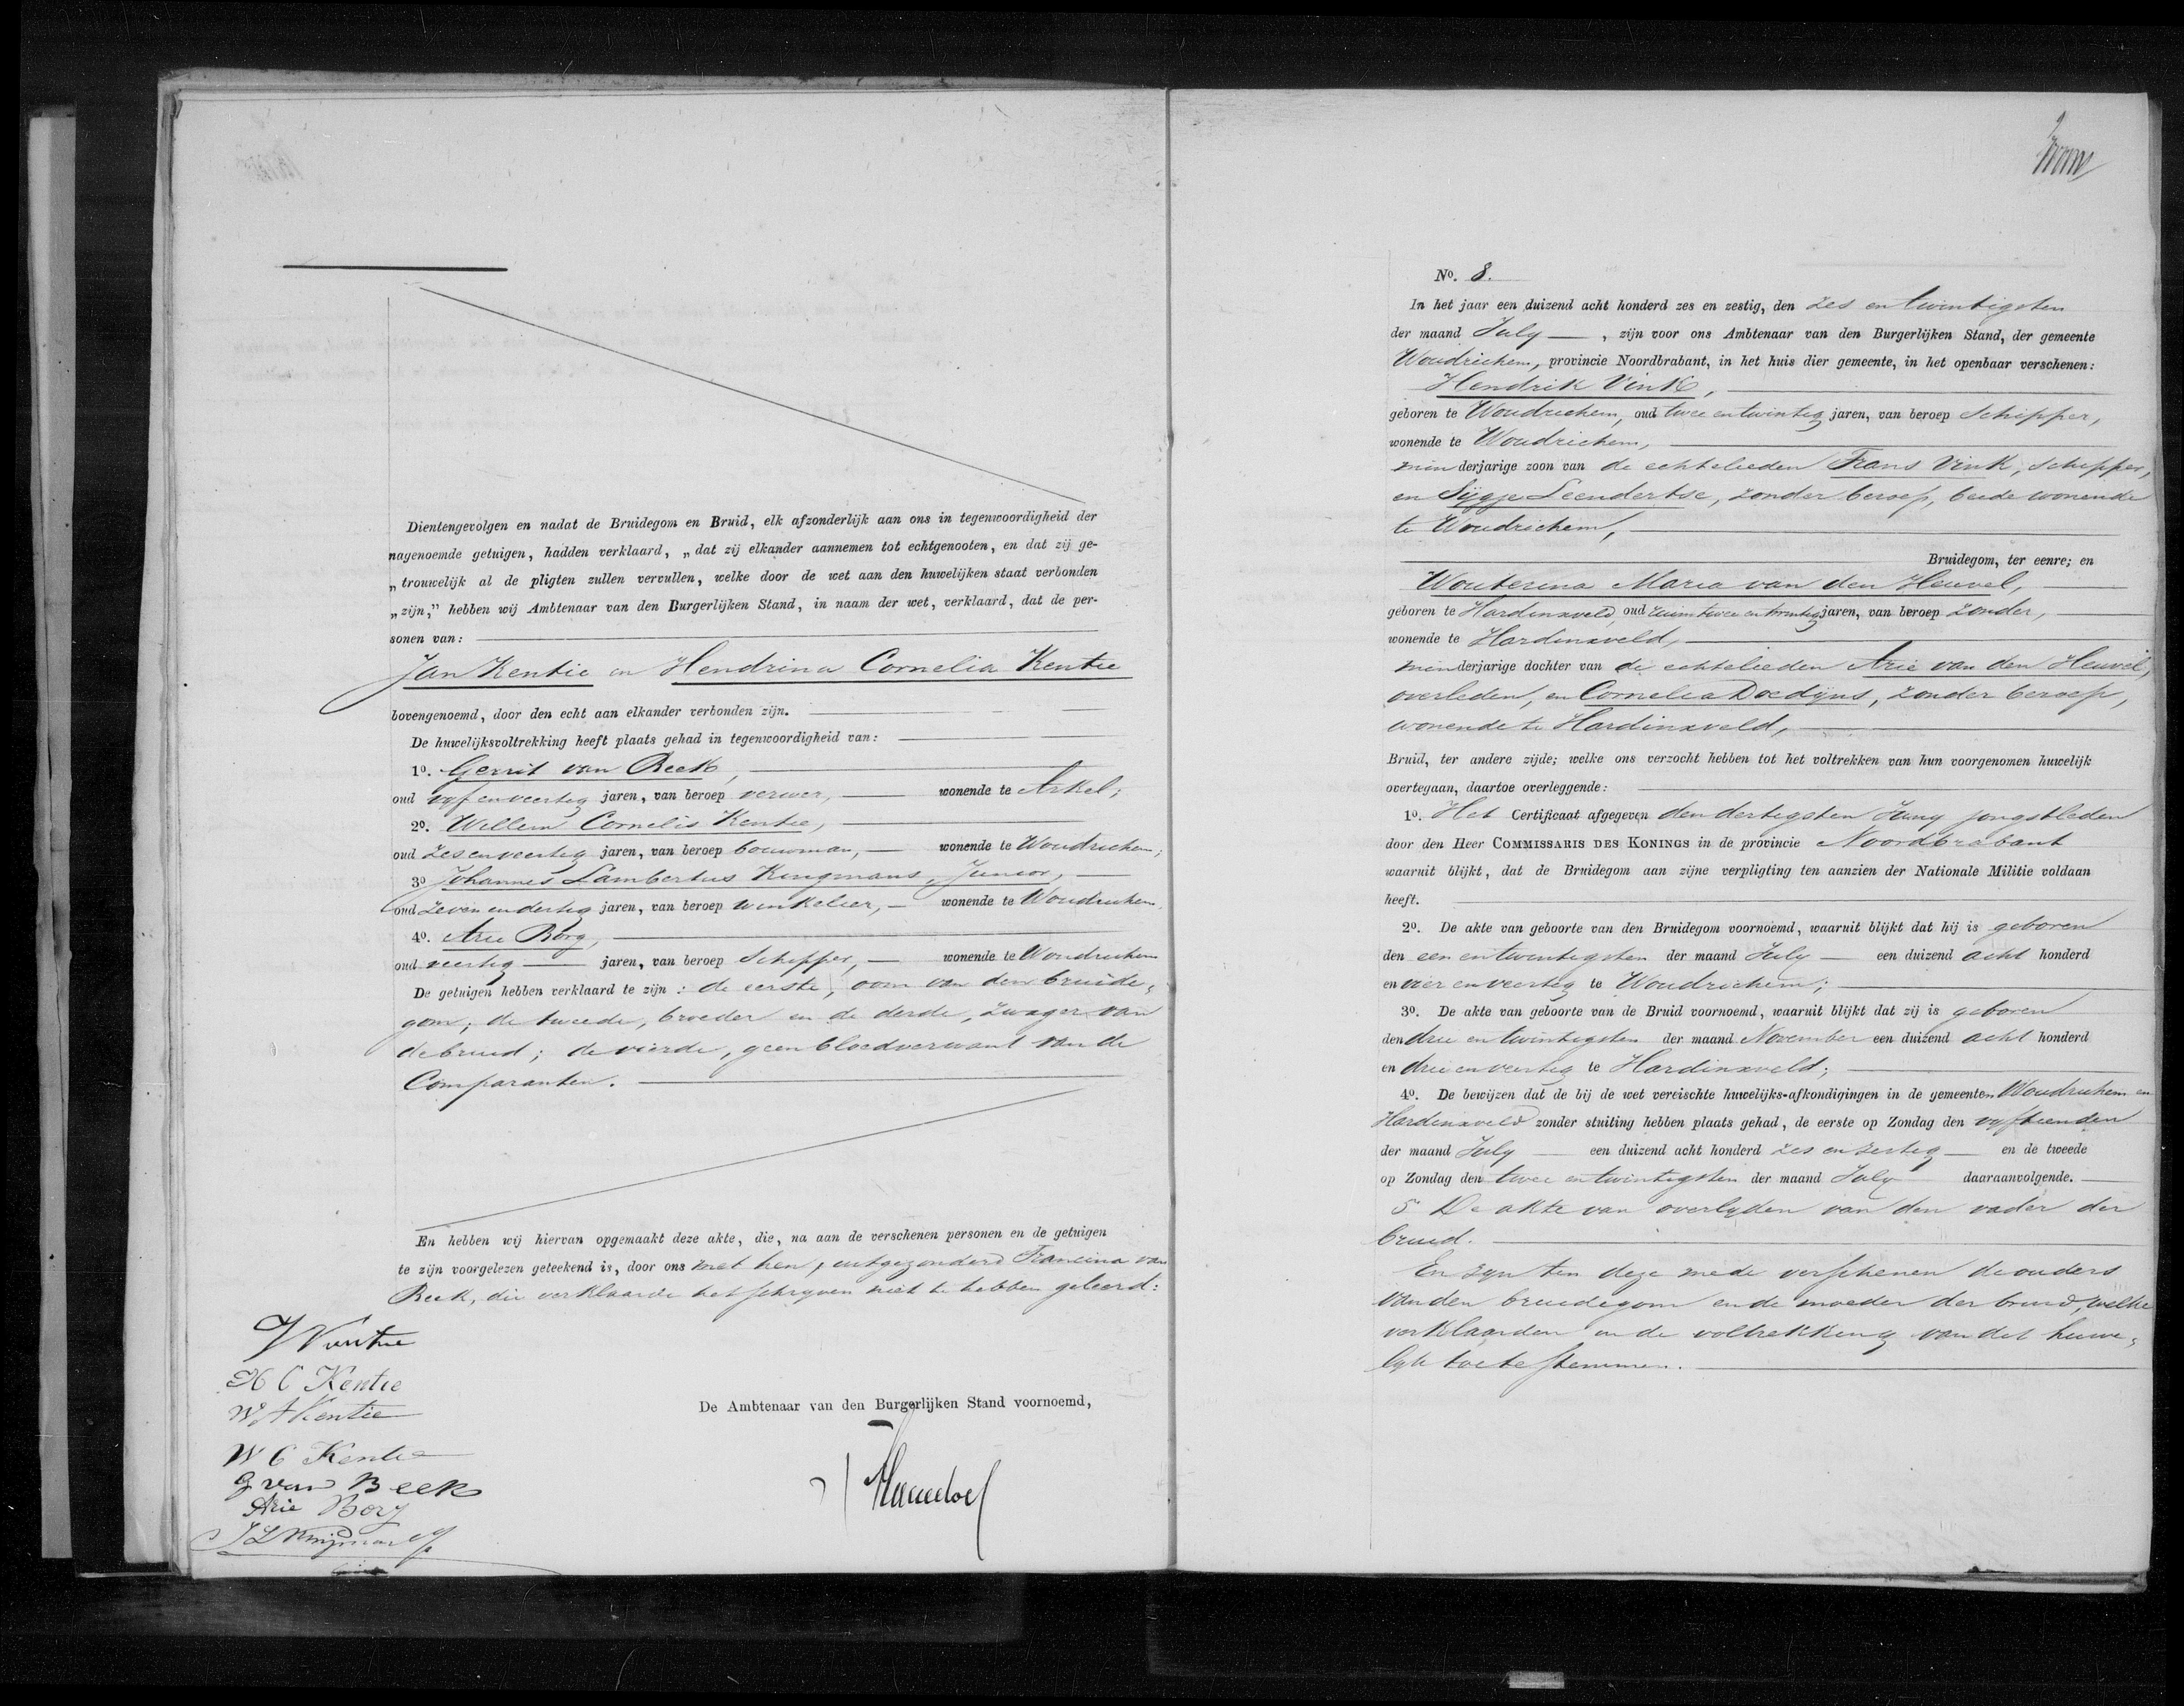 Dientengevolgen en nadat de Bruidegom en Bruid, elk afzonderlijk aan ons in tegenwoordigheid der
nagenoemde getuigen, hadden verklaard, „dat zij elkander aannemen tot echtgenooten, en dat zij ge-
„trouwelijk al de pligten zullen vervullen, welke door de wet aan den huwelijken staat verbonden
„zijn,” hebben wij Ambtenaar van den Burgerlijken Stand, in naam der wet, verklaard, dat de per-
sonen van:
Jan Kentie en Hendrina Cornelia Kentie
bovengenoemd, door den echt aan elkander verbonden zijn.
De huwelijksvoltrekking heeft plaats gehad in tegenwoordigheid van:
1o. Gerrit van Beek,
oud vyf en veertig jaren, van beroep verwer, wonende te Arkel;
2o. Willem Cornelis Kentie,
oud zes en veertig jaren, van beroep bouwman, wonende te Woudrichem;
3o Johannes Lambertus Kuijmans, Junior,
oud zeven en dertig jaren, van beroep winkelier, wonende te Woudrichem
4o. Arie Borg,
oud veertig jaren, van beroep Schipper, wonende te Woudrichem
De getuigen hebben verklaard te zijn: de eerste, oom van den bruide-
gom; de tweede, broeder en de derde, zwager van
de bruid; de vierde, geen bloedverwant van de
Comparanten.
En hebben wij hiervan opgemaakt deze akte, die, na aan de verschenen personen en de getuigen
te zijn voorgelezen geteekend is, door ons met hen, uitgezonderd Francina van
Beek, die verklaarde het schryven niet te hebben geleerd:
J Kentie
H C Kentie
W A Kentie
W C Kentie
G van Beek
Arie Borg
De Ambtenaar van den Burgerlijken Stand voornoemd,
No. 8.
In het jaar een duizend acht honderd zes en zestig, den zes en twintigsten
der maand July, zijn voor ons Ambtenaar van den Burgerlijken Stand, der gemeente
Woudrichem, provincie Noordbrabant, in het huis dier gemeente, in het openbaar verschenen:
Hendrik Vink,
geboren te Woudrichem, oud twee en twintig jaren, van beroep Schipper,
wonende te Woudrichem,
minderjarige zoon van de echtelieden Frans Vink, schipper,
en Sijgje Leendertse, zonder beroep, beide wonende
te Woudrichem,
Bruidegom, ter eenre; en
Wouterina Maria van den Heuvel,
geboren te Hardinxveld, oud ruim twee en twintig jaren, van beroep zonder,
wonende te Hardinxveld,
minderjarige dochter van de echtelieden Arie van den Heuvel,
overleden, en Cornelia Doedijns, zonder beroep,
wonende te Hardinxveld,
Bruid, ter andere zijde; welke ons verzocht hebben tot het voltrekken van hun voorgenomen huwelijk
overtegaan, daartoe overleggende:
1o. Het Certificaat afgegeven den dertigsten Juny jongstleden
door den Heer COMMISSARIS DES KONINGS in de provincie Noordbrabant
waaruit blijkt, dat de Bruidegom aan zijne verpligting ten aanzien der Nationale Militie voldaan
heeft.
2o. De akte van geboorte van den Bruidegom voornoemd, waaruit blijkt dat hij is geboren
den een en twintigsten der maand July een duizend acht honderd
en vier en veertig te Woudrichem;
3o. De akte van geboorte van de Bruid voornoemd, waaruit blijkt dat zij is geboren
den drie en twintigsten der maand November een duizend acht honderd
en drie en veertig te Hardinxveld;
4o. De bewijzen dat de bij de wet vereischte huwelijks-afkondigingen in de gemeenten Woudrichem en
Hardinxveld zonder stuiting hebben plaats gehad, de eerste op Zondag den vyftienden
der maand July een duizend acht honderd zes en zestig en de tweede
op Zondag den twee en twintigsten der maand July daaraanvolgende.
5 De akte van overlyden van den vader der
bruid.
En zyn ten deze mede verschenen de ouders
van den bruidegom en de moeder der bruid, welke
verklaarden in de voltrekking van dit huwe-
lyk toe te stemmen.